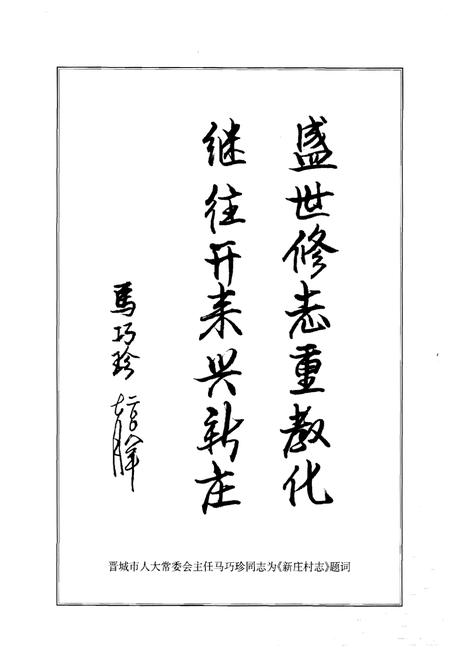 盛世修志重教化
继往开来兴新庄
马巧珍
二〇〇八年
晋城市人大常委会主任马巧珍同志为《新庄村志》题词